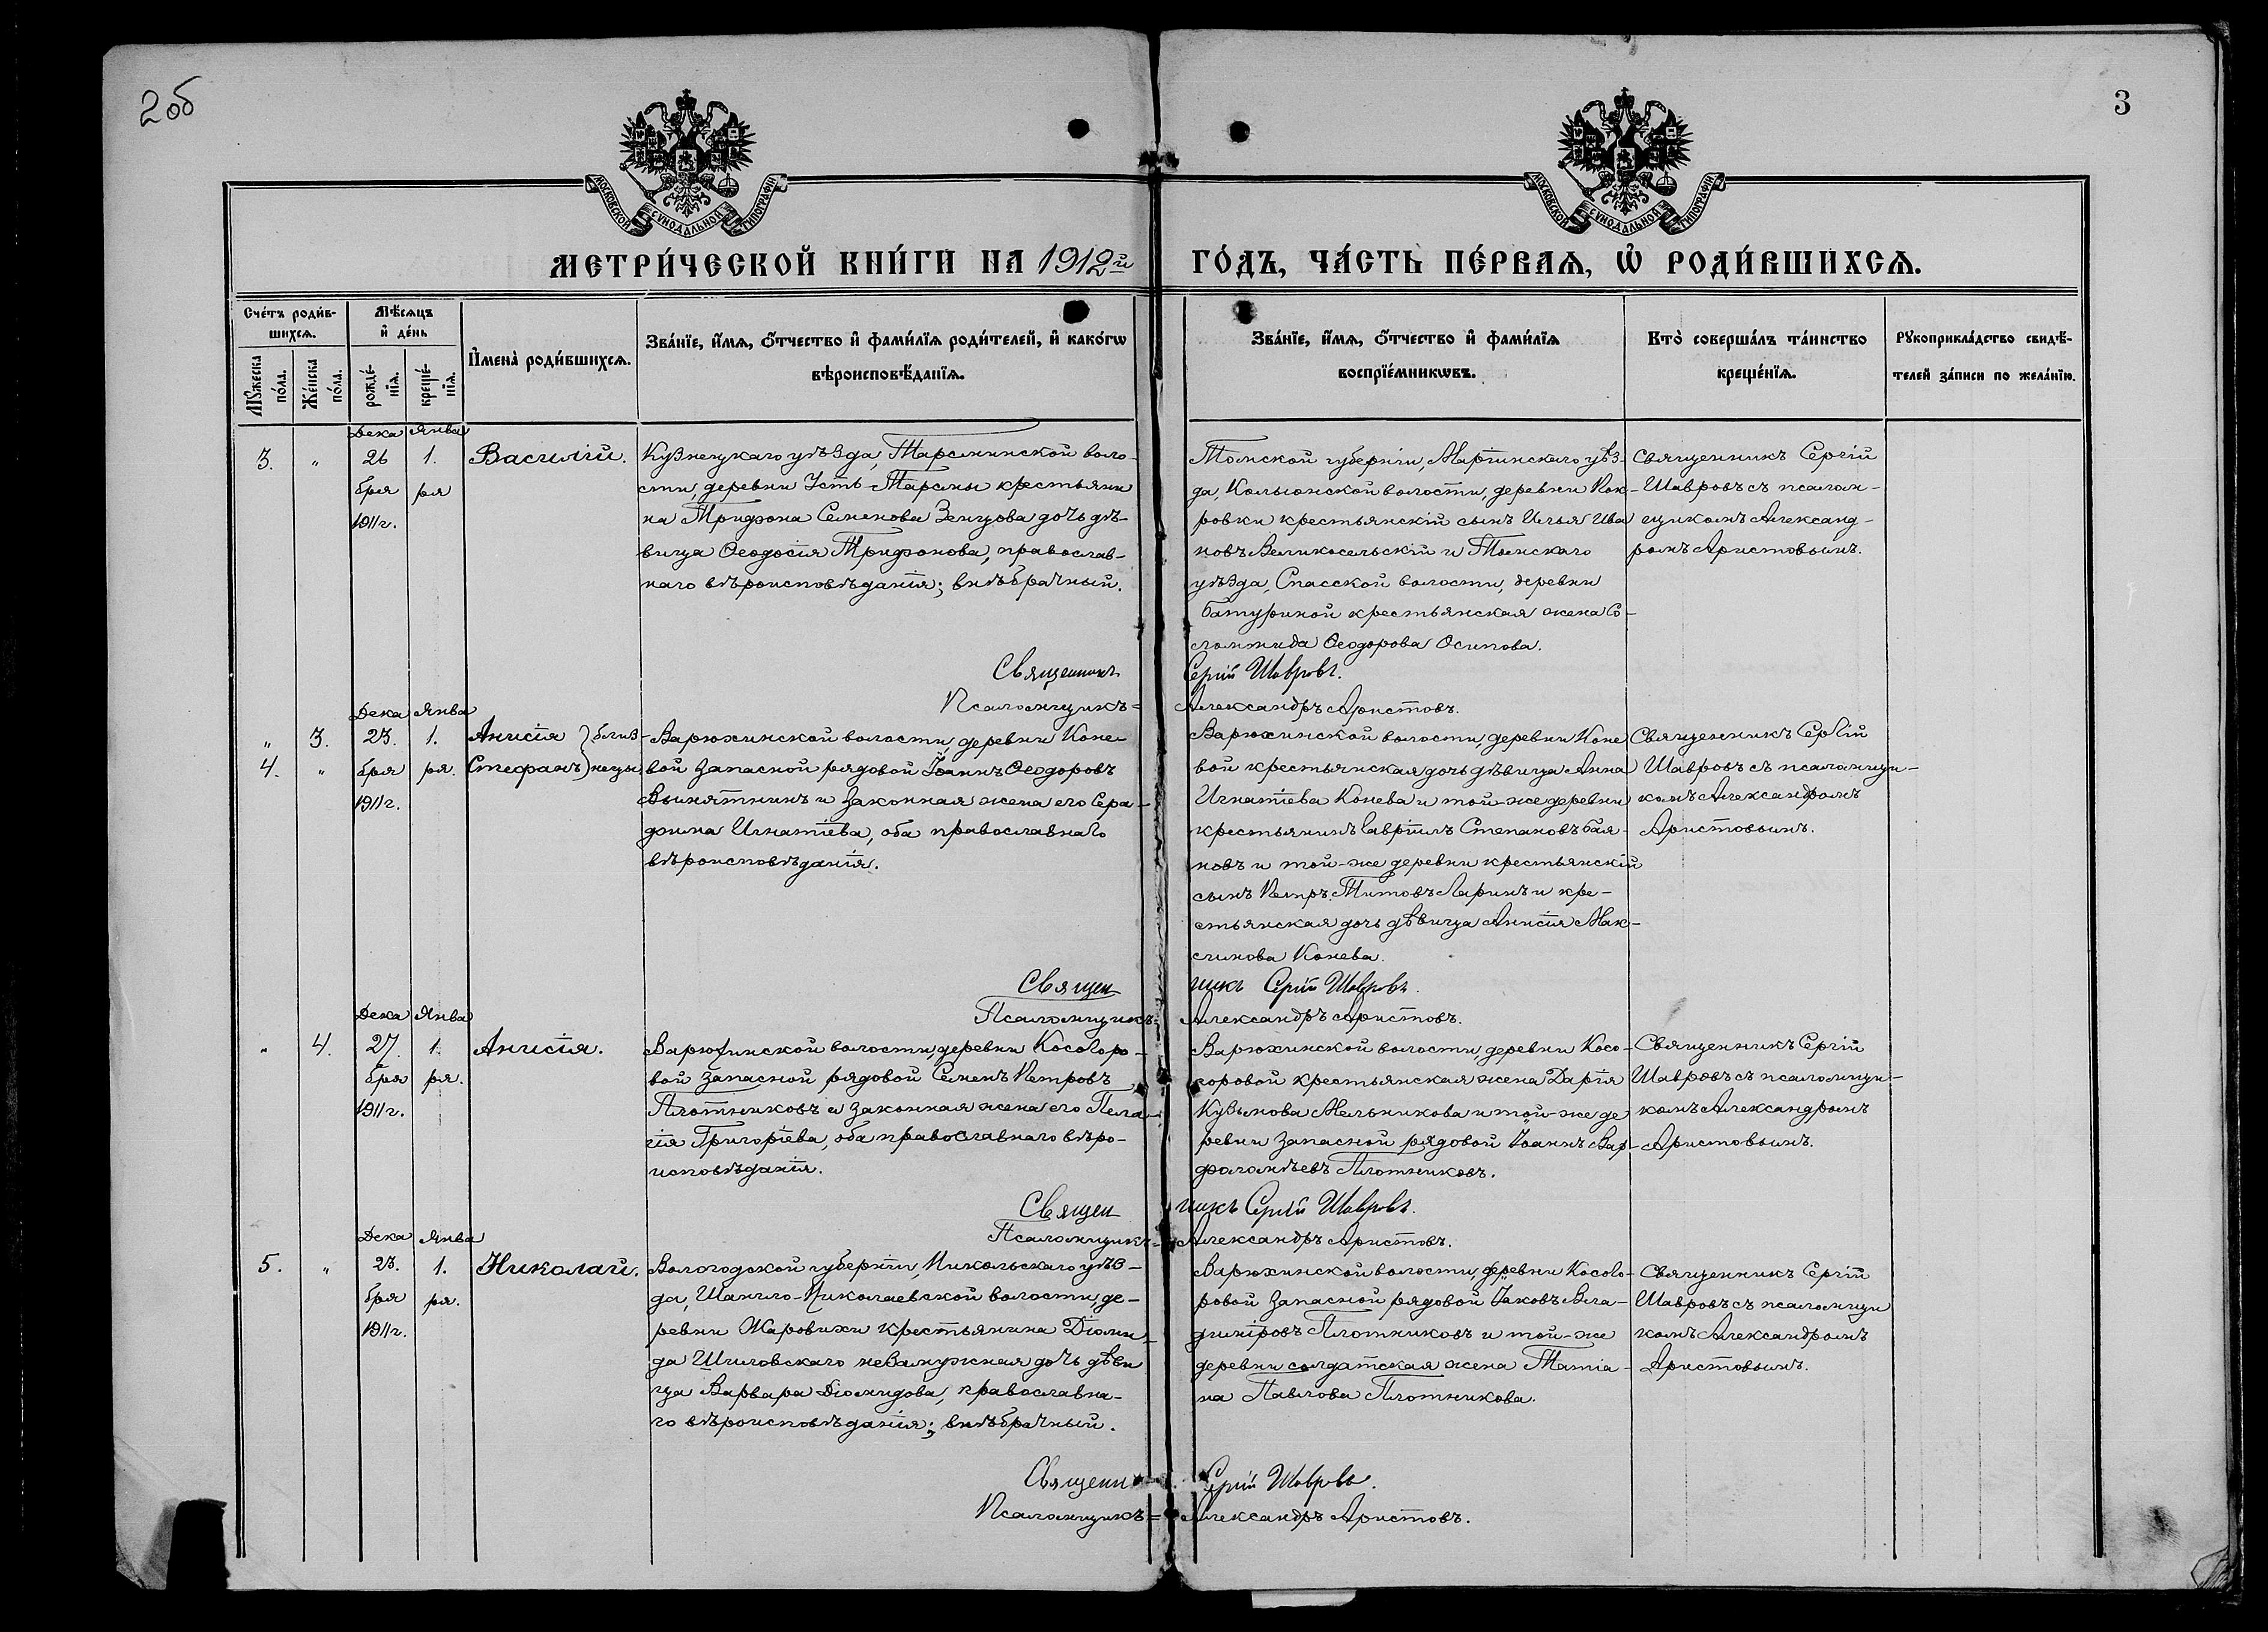 2 об
3
МОСКОВСКОЙ СѴНОДАЛЬНОЙ ТИПОГРАФІИ
МОСКОВСКОЙ СѴНОДАЛЬНОЙ ТИПОГРАФІИ
МЕТРИ́ЧЕСКОЙ КНИ́ГИ НА 1912й ГО́ДЪ, ЧА́СТЬ ПЕ́РВАѦ, Ѡ҆ РОДИ́ВШИХСѦ.
Сче́тъ роди́в-
шихсѧ.
Мѣ́сѧцъ
и҆ де́нь
Мꙋжеска
по́ла.
Же́нска
по́ла.
рожде́-
нїѧ.
креще́-
нїѧ.
И҆мена̀ роди́вшихсѧ.
Зва́нїе, и҆́мѧ, ѻ҆́тчество и҆ фами́лїѧ роди́телей, и҆ како́гѡ
вѣроисповѣ́данїѧ.
Зва́нїе, и҆́мѧ, ѻ҆́тчество и҆ фами́лїѧ
воспрїе́мникѡвъ.
Кто̀ соверша́лъ та́инство
креще́нїѧ.
Рꙋкоприкла́дство свидѣ́-
телей за́писи по жела́нїю.
Дека Янва
3. " 26 1. Василій.
бря ря
1911 г.
Кузнецкаго уѣзда, Тарсминской воло-
сти, деревни Усть-Тарсмы крестьяни
на Трифона Семенова Зенцова дочь дѣ-
вица Ѳеодосія Трифонова, православ-
наго вѣроисповѣданія; внѣбрачный.
Томской губерніи, Маріинскаго уѣз-
да, Кольонской волости, деревни Пок-
ровки крестьянскій сынъ Илья Ива
новъ Великосельскій и Томскаго
уѣзда, Спасской волости, деревни
Батуриной крестьянская жена Со-
ломнида Ѳеодорова Осипова.
Священникъ Сергій
Шавровъ съ псалом-
щикомъ Александ-
ромъ Аристовымъ.
Священникъ Сергій Шавровъ.
Псаломщикъ= Александръ Аристовъ.
Дека Янва
" 3. 23. 1. Анисія } близ-
4. " бря ря. Стефанъ } нецы
1911 г.
Варюхинской волости, деревни Коне-
вой запасной рядовой Іоаннъ Ѳеодоровъ
Вышятнинъ и законная жена его Сера-
фима Игнатіева, оба православнаго
вѣроисповѣданія.
Варюхинской волости, деревни Коне
вой крестьянская дочь дѣвица Анна
Игнатіева Конева и той-же деревни
крестьянинъ Гавріилъ Степановъ Бая-
новъ и той-же деревни крестьянскій
сынъ Петръ Титовъ Ларинъ и кре-
стьянская дочь дѣвица Анисія Мак-
симова Конева.
Священникъ Сергій
Шавровъ съ псаломщи-
комъ Александромъ
Аристовымъ.
Священ никъ Сергій Шавровъ.
Псаломщикъ= Александръ Аристовъ.
Дека Янва
" 4. 27. 1. Анисія.
бря ря.
1911 г.
Варюхинской волости, деревни Косогоро-
вой запасной рядовой Семенъ Петровъ
Плотниковъ и законная жена его Пела-
гія Григоріева, оба православнаго вѣро-
исповѣданія.
Варюхинской волости, деревни Косо-
горовой крестьянская жена Дарія
Кузьмова Мельникова и той-же де
ревни запасной рядовой Іоаннъ Вар-
фоломѣевъ Плотниковъ.
Священникъ Сергій
Шавровъ съ псаломщи-
комъ Александромъ
Аристовымъ.
Священ никъ Сергій Шавровъ.
Псаломщикъ= Александръ Аристовъ.
Дека Янва
5. " 23. 1. Николай.
бря ря.
1911 г.
Вологодской губерніи, Никольскаго уѣз-
да, Шанило-Николаевской волости, де-
ревни Жаровихи крестьянина Діоми-
да Шиловскаго незамужная дочь дѣви
ца Варвара Діомидова, православна-
го вѣроисповѣданія; внѣбрачный.
Варюхинской волости, деревни Косого-
ровой запасной рядовой Іаковъ Вла-
диміровъ Плотниковъ и той-же
деревни солдатская жена Татіа-
на Павлова Плотникова.
Священникъ Сергій
Шавровъ съ псаломщи
комъ Александромъ
Аристовымъ.
Священн Сергій Шавровъ.
Псаломщикъ= Александръ Аристовъ.